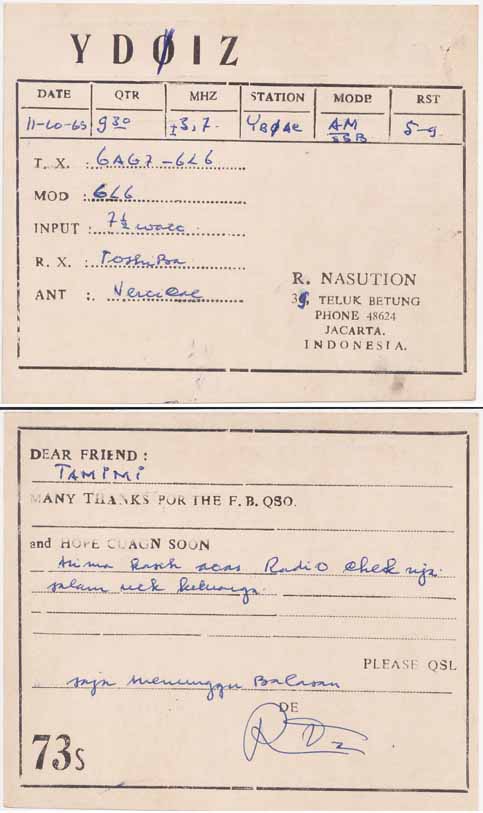 YDØIZ
DATE QTR MHZ STATION MODE RST
11-10-65 930 ±3,7. YBØAC AM SSB 5-9
T. X. : 6AG7-6L6
MOD : 6L6
INPUT : 7½ watt
R. X. : Toshiba
ANT : Vertical
R. NASUTION
39, TELUK BETUNG
PHONE 48624
JACARTA.
INDONESIA.
DEAR FRIEND :
TAMIMI
MANY THANKS FOR THE F. B. QSO.
and HOPE CUAGN SOON
trima kasih atas Radio chek nja.
salam utk keluarga.
PLEASE QSL
saja menunggu Balasan
DE
73s